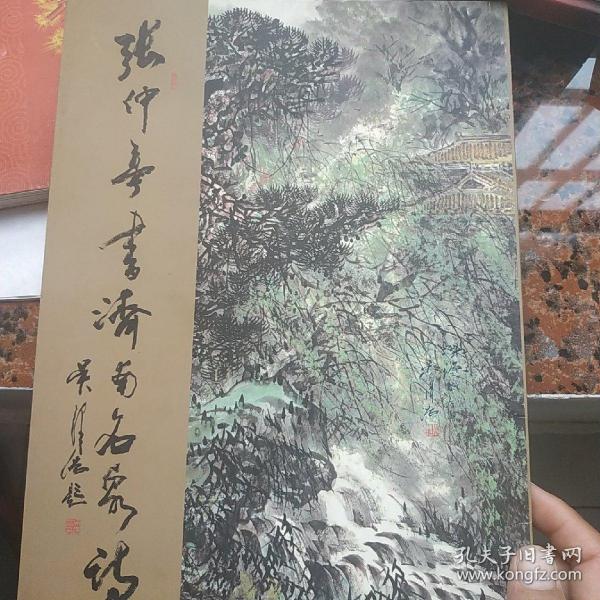 张仲亭书济南名泉诗
吴泽浩题
孔夫子旧书网
www.kongfz.com